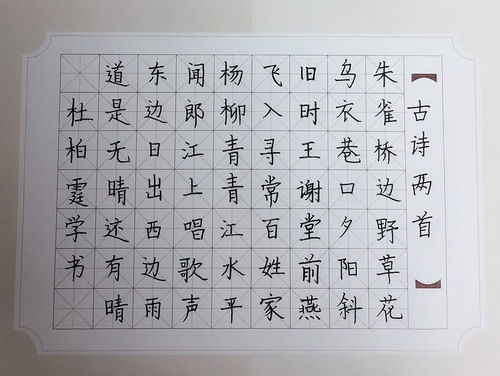 【古诗两首】
朱雀桥边野草花
乌衣巷口夕阳斜
旧时王谢堂前燕
飞入寻常百姓家
杨柳青青江水平
闻郎江上唱歌声
东边日出西边雨
道是无晴还有晴
杜柏霆学书